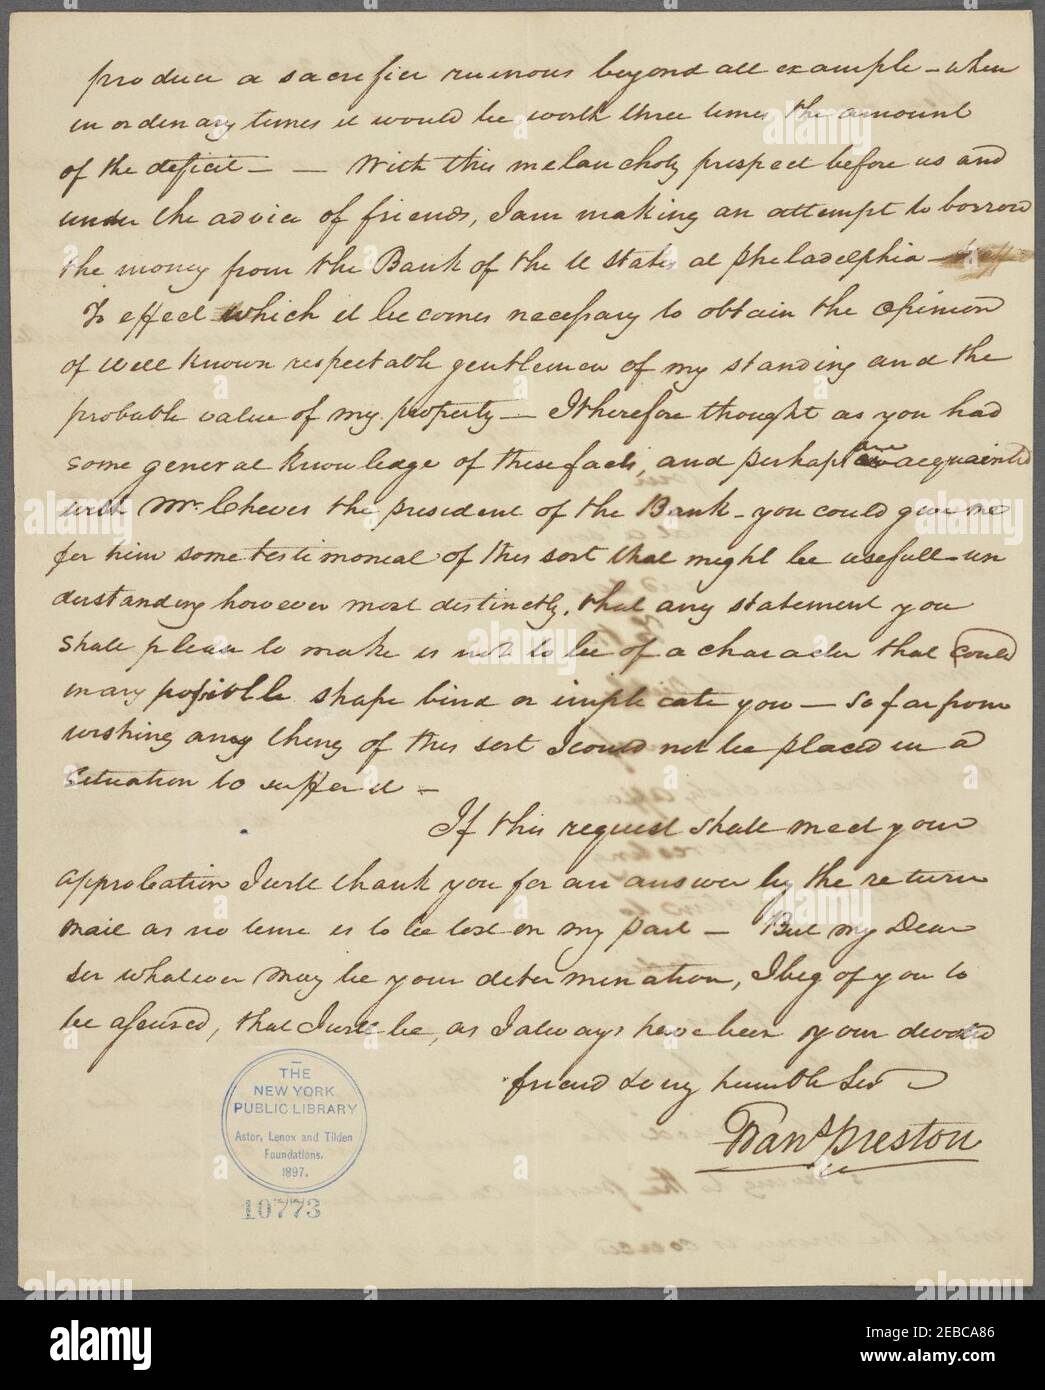 produce a sacrifice ruinous beyond all example - when
in ordinary times it would be worth three times the amount
of the deficit - - With this melancholy prospect before us and
under the advice of friends, I am making an attempt to borrow
the money from the Bank of the U States at Philadelphia -
To effect which it becomes necessary to obtain the opinion
of well known respectable gentlemen of my standing and the
probable value of my property - I therefore thought as you had
some general knowledge of these facts, and perhaps are acquainted
with Mr. Cheves the president of the Bank - you could give me
for him some testimonial of this sort that might be usefull - un
derstanding however most distinctly, that any statement you
shall please to make is not to be of a character that could
in any possible shape bind or implicate you - so far from
wishing any thing of this sort I could not be placed in a
situation to suffer it -
If this request shall meet your
approbation I will thank you for an answer by the return
mail as no time is to be lost on my part - But my Dear
Sir whatever may be your determination, I beg of you to
be assured, that I will be, as I always have been your devoted
friend & very humble Ser
Frans Preston
THE
NEW YORK
PUBLIC LIBRARY
Astor, Lenox and Tilden
Foundations.
1897.
10773
alamy
Image ID: 2EBCA86
www.alamy.com